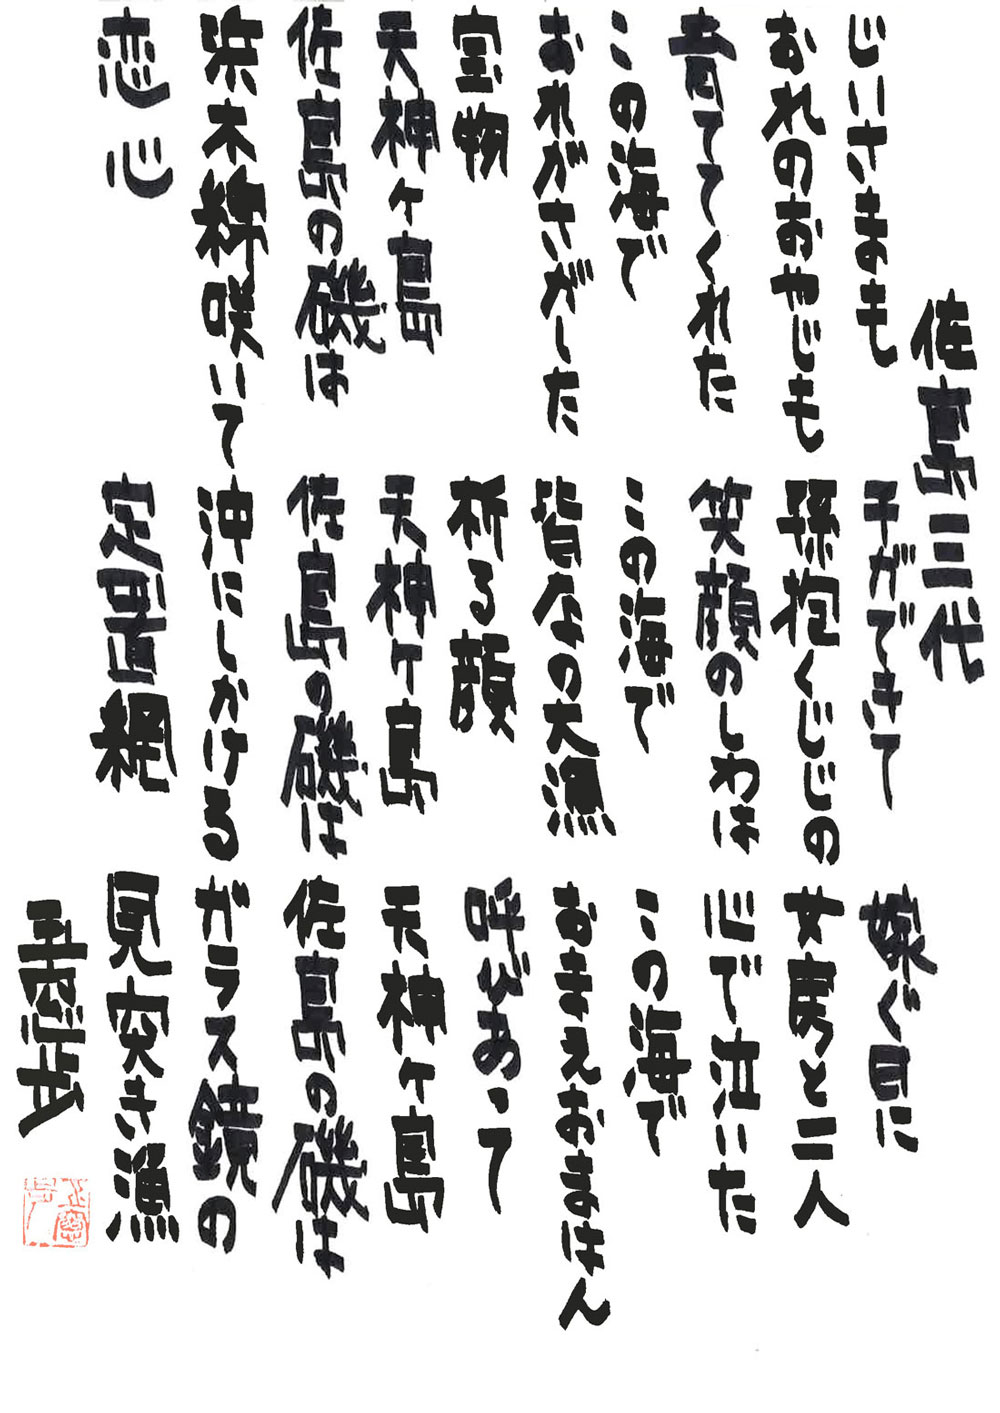 佐島三代
じいさまも
おれのおやじも
育ててくれた
この海で
おれがさがした
宝物
天神ヶ島
佐島の磯は
浜木綿咲いて
恋心
子ができて
孫抱くじじの
笑顔のしわは
この海で
皆なの大漁
祈る顔
天神ヶ島
佐島の磯は
沖にしかける
定置網
嫁ぐ日に
女房と二人
心で泣いた
この海で
おまえおまはん
呼びあって
天神ヶ島
佐島の磯は
ガラス鏡の
見突き漁